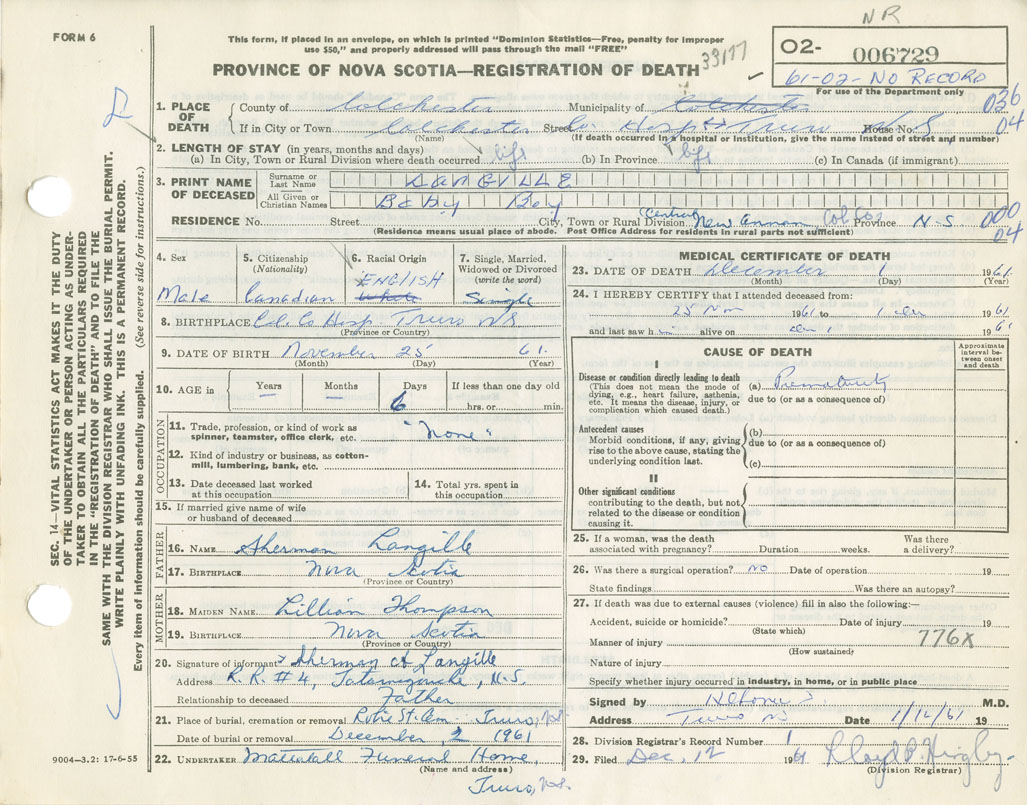 NR
FORM 6
This form, if placed in an envelope, on which is printed "Dominion Statistics—Free, penalty for improper
use $50," and properly addressed will pass through the mail "FREE"
33177
O2- 006729
61-02-NO RECORD
For use of the Department only
PROVINCE OF NOVA SCOTIA—REGISTRATION OF DEATH
1. PLACE OF DEATH
County of Colchester Municipality of Colchester 036
If in City or Town Colchester Street Co. Hosp Truro House No. N.S 04
(Name) (If death occurred in a hospital or institution, give the name instead of street and number)
2. LENGTH OF STAY (in years, months and days)
(a) In City, Town or Rural Division where death occurred life (b) In Province life (c) In Canada (if immigrant)
3. PRINT NAME OF DECEASED
Surname or Last Name LANGILLE
All Given or Christian Names Baby Boy
RESIDENCE No. Street City, Town or Rural Division (Central) New Annan Col Co. Province N-S 000 04
(Residence means usual place of abode. Post Office Address for residents in rural parts not sufficient)
4. Sex Male
5. Citizenship (Nationality) Canadian
6. Racial Origin ENGLISH White
7. Single, Married, Widowed or Divorced (write the word) Single
8. BIRTHPLACE Col. Co Hosp Truro NS
(Province or Country)
9. DATE OF BIRTH November 25 61.
(Month) (Day) (Year)
10. AGE in Years — Months — Days 6 If less than one day old hrs. or min.
OCCUPATION
11. Trade, profession, or kind of work as spinner, teamster, office clerk, etc. "None"
12. Kind of industry or business, as cotton-mill, lumbering, bank, etc.
13. Date deceased last worked at this occupation
14. Total yrs. spent in this occupation
15. If married give name of wife or husband of deceased
FATHER
16. NAME Sherman Langille
17. BIRTHPLACE Nova Scotia
(Province or Country)
MOTHER
18. MAIDEN NAME Lillian Thompson
19. BIRTHPLACE Nova Scotia
(Province or Country)
20. Signature of informant Sherman A Langille
Address R.R. #4, Tatamagouche, N.S.
Relationship to deceased Father
21. Place of burial, cremation or removal Robie St. Cem Truro, N.S.
Date of burial or removal December 2 1961
22. UNDERTAKER Mattatall Funeral Home,
(Name and address)
Truro, N.S.
MEDICAL CERTIFICATE OF DEATH
23. DATE OF DEATH December 1 1961.
(Month) (Day) (Year)
24. I HEREBY CERTIFY that I attended deceased from:
25 Nov 1961 to 1 Dec 1961
and last saw him alive on Dec 1 1961
CAUSE OF DEATH
Approximate interval between onset and death
I
Disease or condition directly leading to death
(This does not mean the mode of dying, e.g., heart failure, asthenia, etc. It means the disease, injury, or complication which caused death.)
(a) Prematurity
due to (or as a consequence of)
Antecedent causes
Morbid conditions, if any, giving rise to the above cause, stating the underlying condition last.
(b)
due to (or as a consequence of)
(c)
II
Other significant conditions
contributing to the death, but not related to the disease or condition causing it.
25. If a woman, was the death associated with pregnancy? Duration weeks. Was there a delivery?
26. Was there a surgical operation? NO Date of operation 19
State findings Was there an autopsy?
27. If death was due to external causes (violence) fill in also the following:—
Accident, suicide or homicide? Date of injury 19
(State which)
776X
Manner of injury
(How sustained)
Nature of injury
Specify whether injury occurred in industry, in home, or in public place
Signed by M.D.
Address Truro NS Date 1/12/61 19
28. Division Registrar's Record Number 1
29. Filed Dec. 12 1961 Lloyd P. Higby
(Division Registrar)
SEC. 14—VITAL STATISTICS ACT MAKES IT THE DUTY
OF THE UNDERTAKER OR PERSON ACTING AS UNDER-
TAKER TO OBTAIN ALL THE PARTICULARS REQUIRED
IN THE "REGISTRATION OF DEATH" AND TO FILE THE
SAME WITH THE DIVISION REGISTRAR WHO SHALL ISSUE THE BURIAL PERMIT.
WRITE PLAINLY WITH UNFADING INK. THIS IS A PERMANENT RECORD.
Every item of information should be carefully supplied. (See reverse side for instructions.)
9004—3.2: 17-6-55